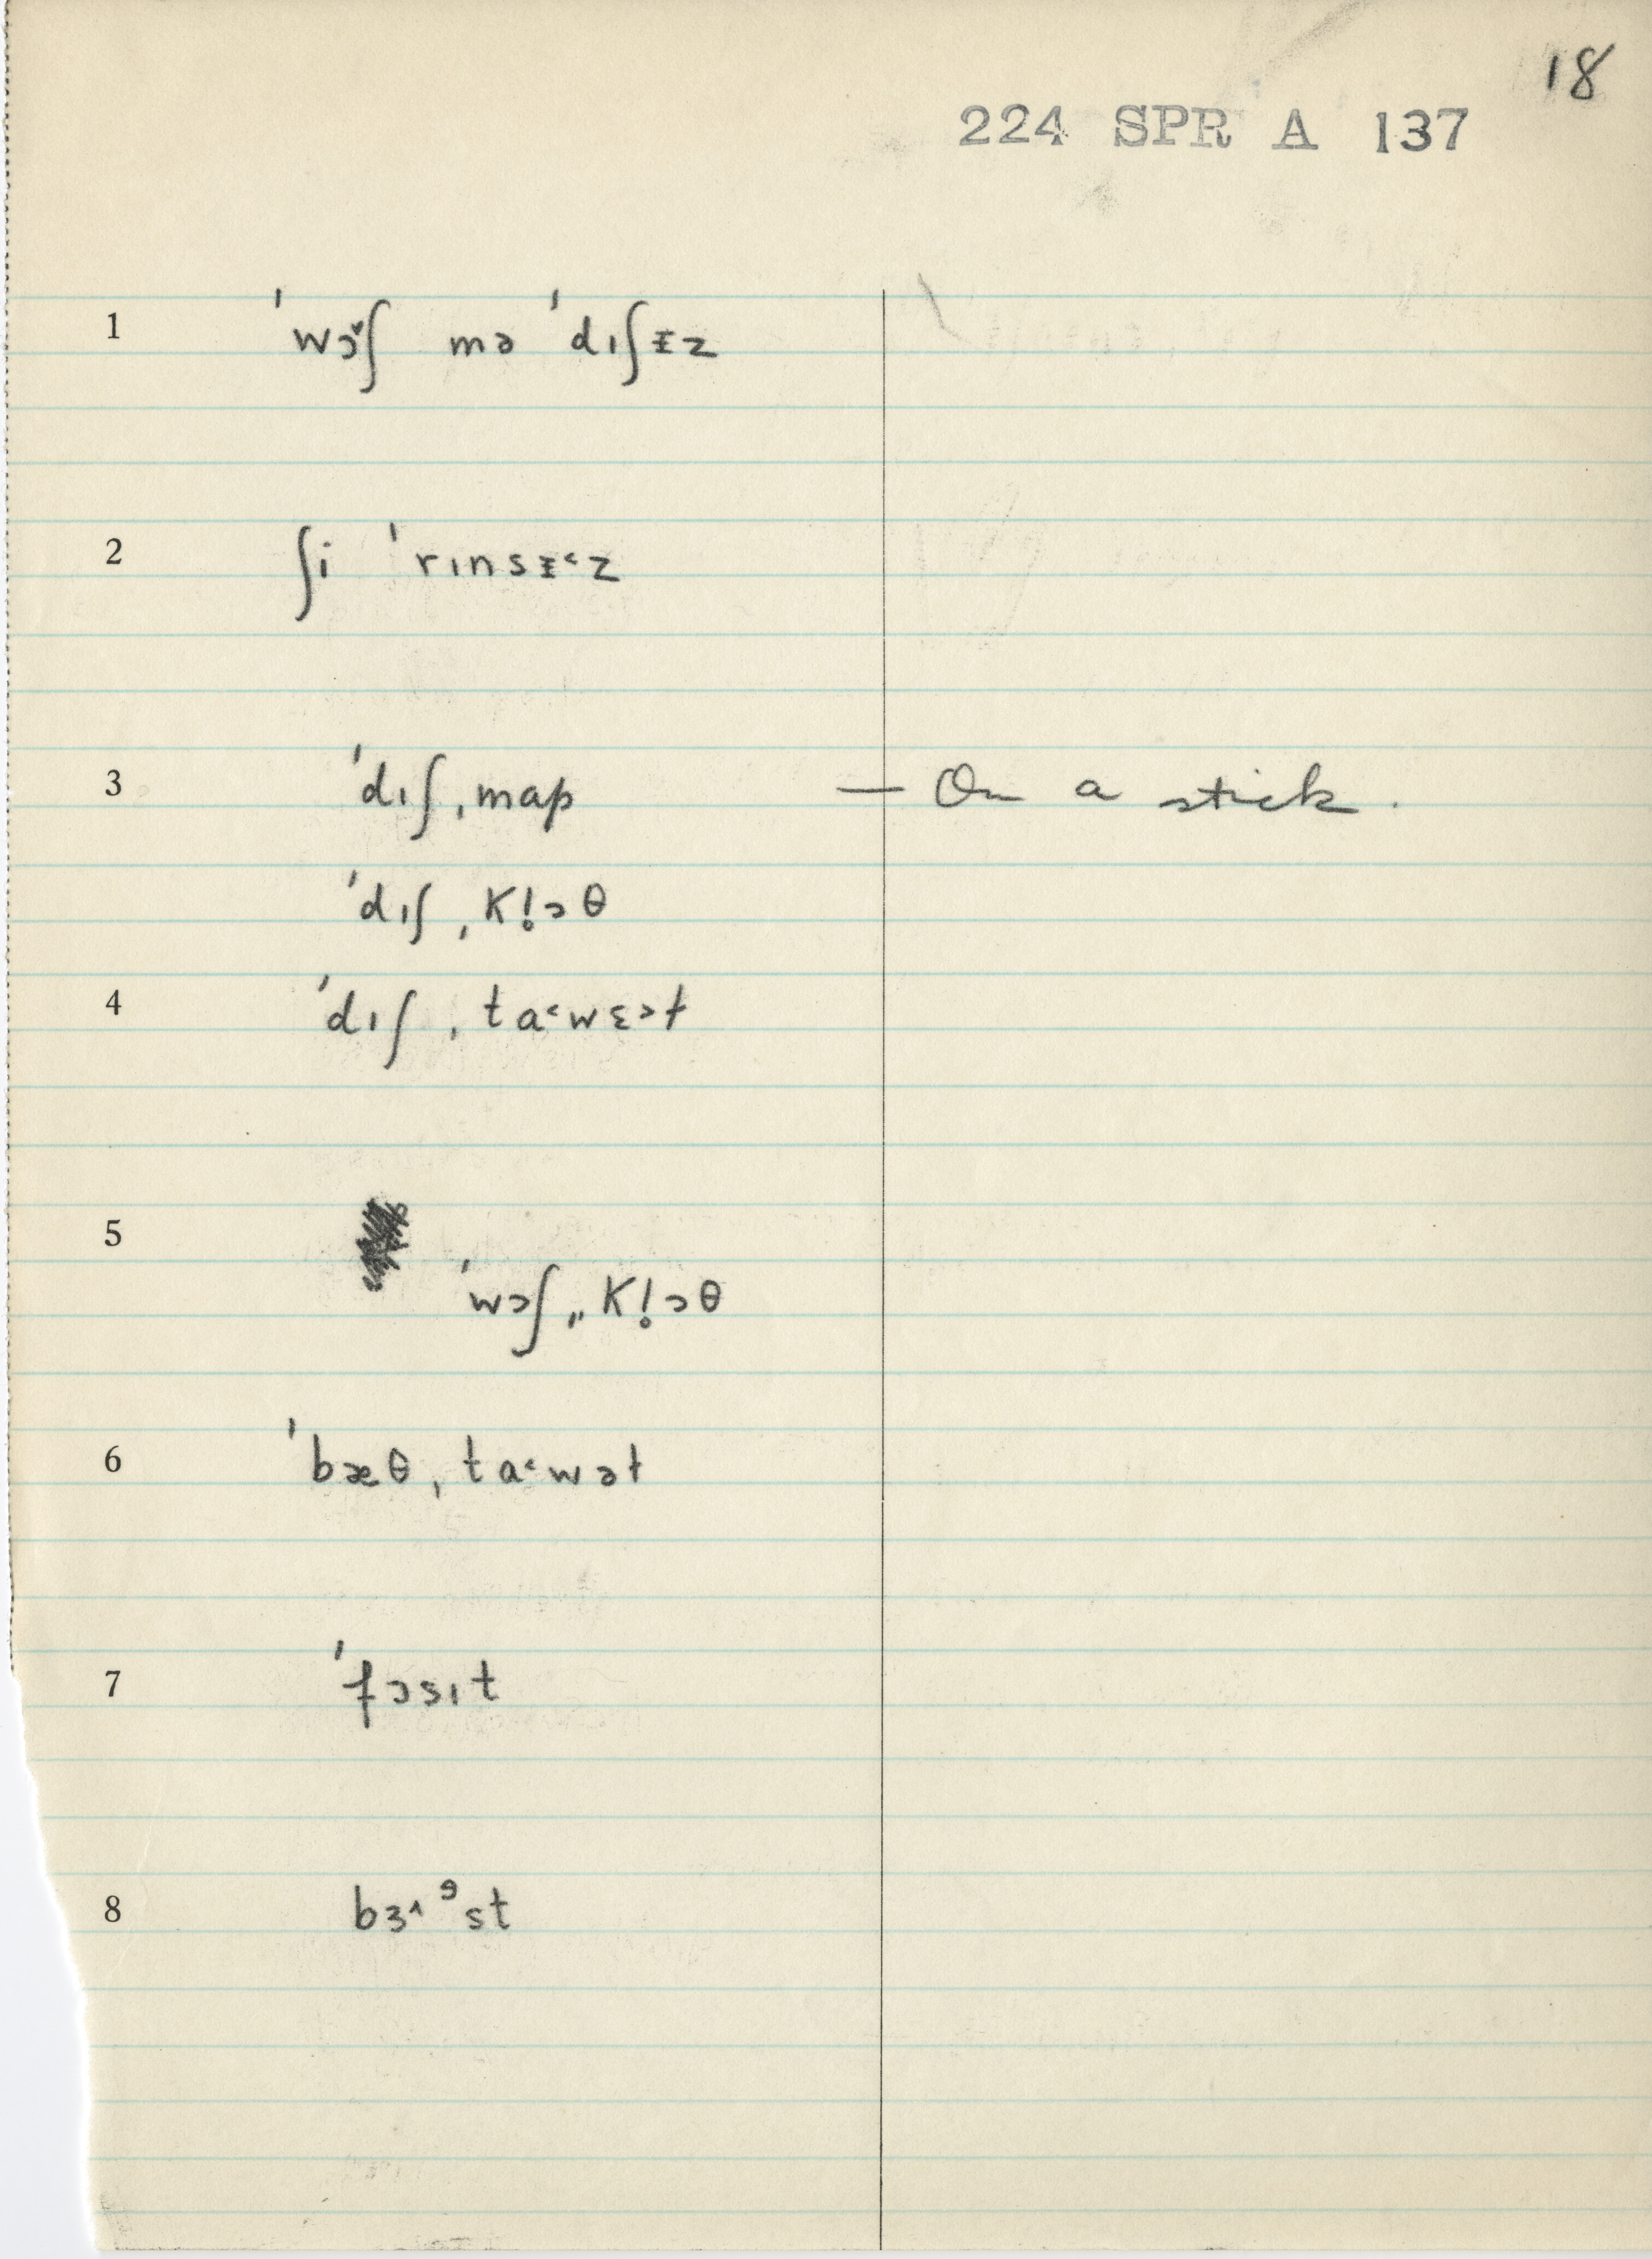 18
224 SPR A 137
1 ˈwɔ˅ʃ mə ˈdɪʃᵻz
2 ʃi ˈrɪnsᵻ˂z
3 ˈdɪʃˌmap — On a stick.
ˈdɪʃˌkl̥ɔθ
4 ˈdɪʃˌta˂wɛ˃ɫ
5 ˈwɔʃˌˌkl̥ɔθ
6 ˈbæθˌta˂wəɫ
7 ˈfɔsɪt
8 bɜ˄ᵊst